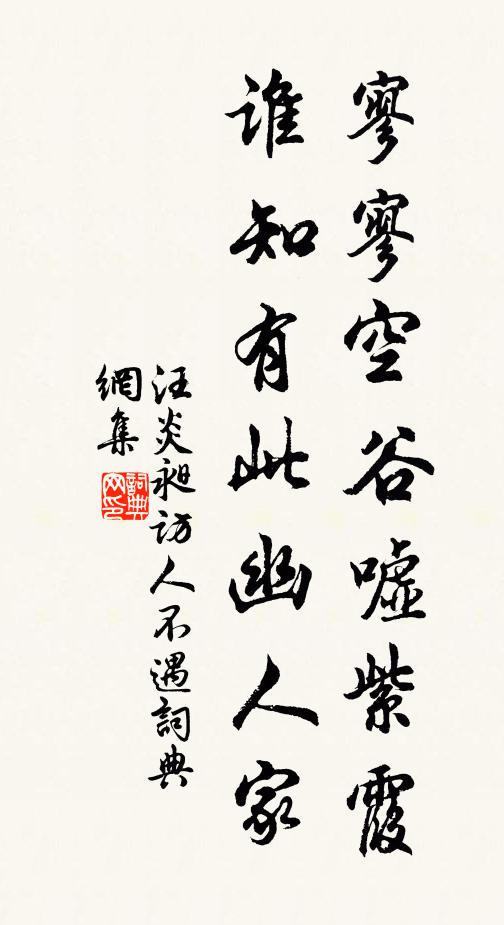 寥寥空谷嘘紫霞
谁知有此幽人家
汪炎昶访人不遇詞典
網集
詞典
网印